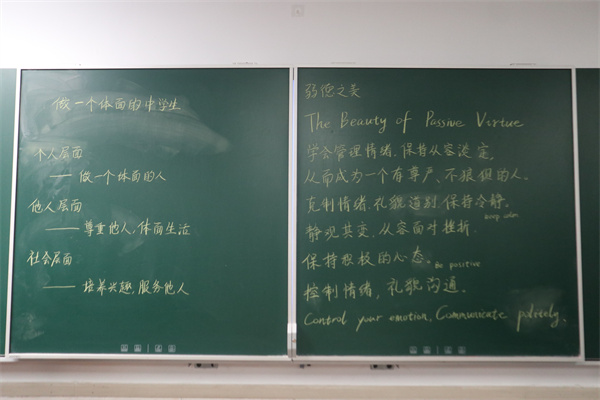 做一个体面的中学生
个人层面
—— 做一个体面的人
他人层面
—— 尊重他人,体面生活
社会层面
—— 培养兴趣,服务他人
弱德之美
The Beauty of Passive Virtue
学会管理情绪,保持从容淡定,
从而成为一个有尊严、不狼狈的人。
克制情绪,礼貌道别,保持冷静。
keep calm
静观其变,从容面对挫折.
保持积极的心态。 Be positive
控制情绪,礼貌沟通。
Control your emotion, Communicate politely.